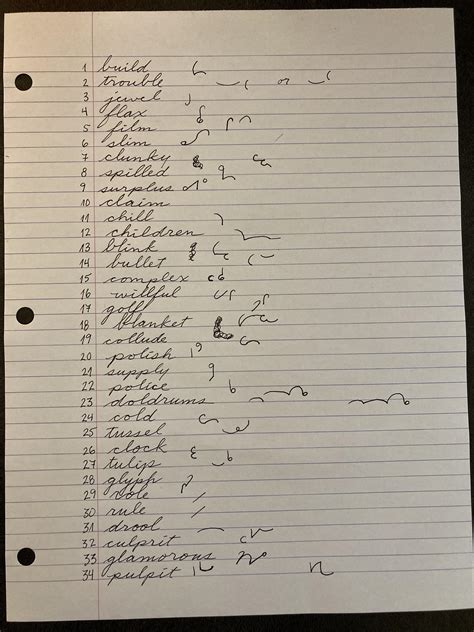 1 build
2 trouble or
3 jewel
4 flax
5 film
6 slim
7 clunky
8 spilled
9 surplus
10 claim
11 chill
12 children
13 blink
14 bullet
15 complex
16 willful
17 golf
18 blanket
19 collude
20 polish
21 supply
22 police
23 doldrums
24 cold
25 tussel
26 clock
27 tulip
28 glyph
29 role
30 rule
31 drool
32 culprit
33 glamorous
34 pulpit